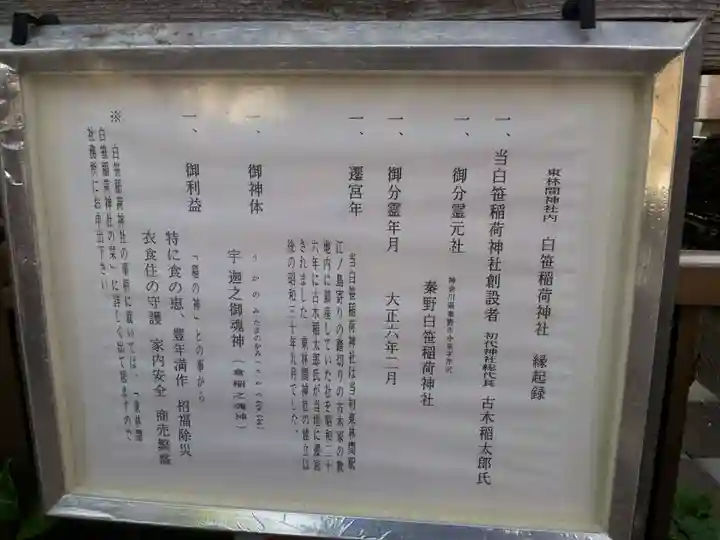 東林間神社内 白笹稲荷神社 縁起録
一、当白笹稲荷神社創設者 初代神社総代長 古木稲太郎氏
一、御分霊元社
神奈川県秦野市今泉字井沢
秦野白笹稲荷神社
一、御分霊年月 大正六年二月
一、遷宮年
当白笹稲荷神社は当初東林間駅
江ノ島寄りの踏切りの古木家の敷
地内に鎮座していた社を昭和二十
六年に古木稲太郎氏が当地に遷宮
されました 東林間神社の建立は
後の昭和三十年九月でした。
一、御神体
宇迦之御魂神(倉稲之魂神)
一、御利益
「稲の神」との事から
特に食の恵、豊年満作 招福除災
衣食住の守護 家内安全 商売繁盛
※ 白笹稲荷神社の事柄に就いては、「東林間
白笹稲荷神社の栞」に詳しく出て居ますので
社務所にお申出下さい